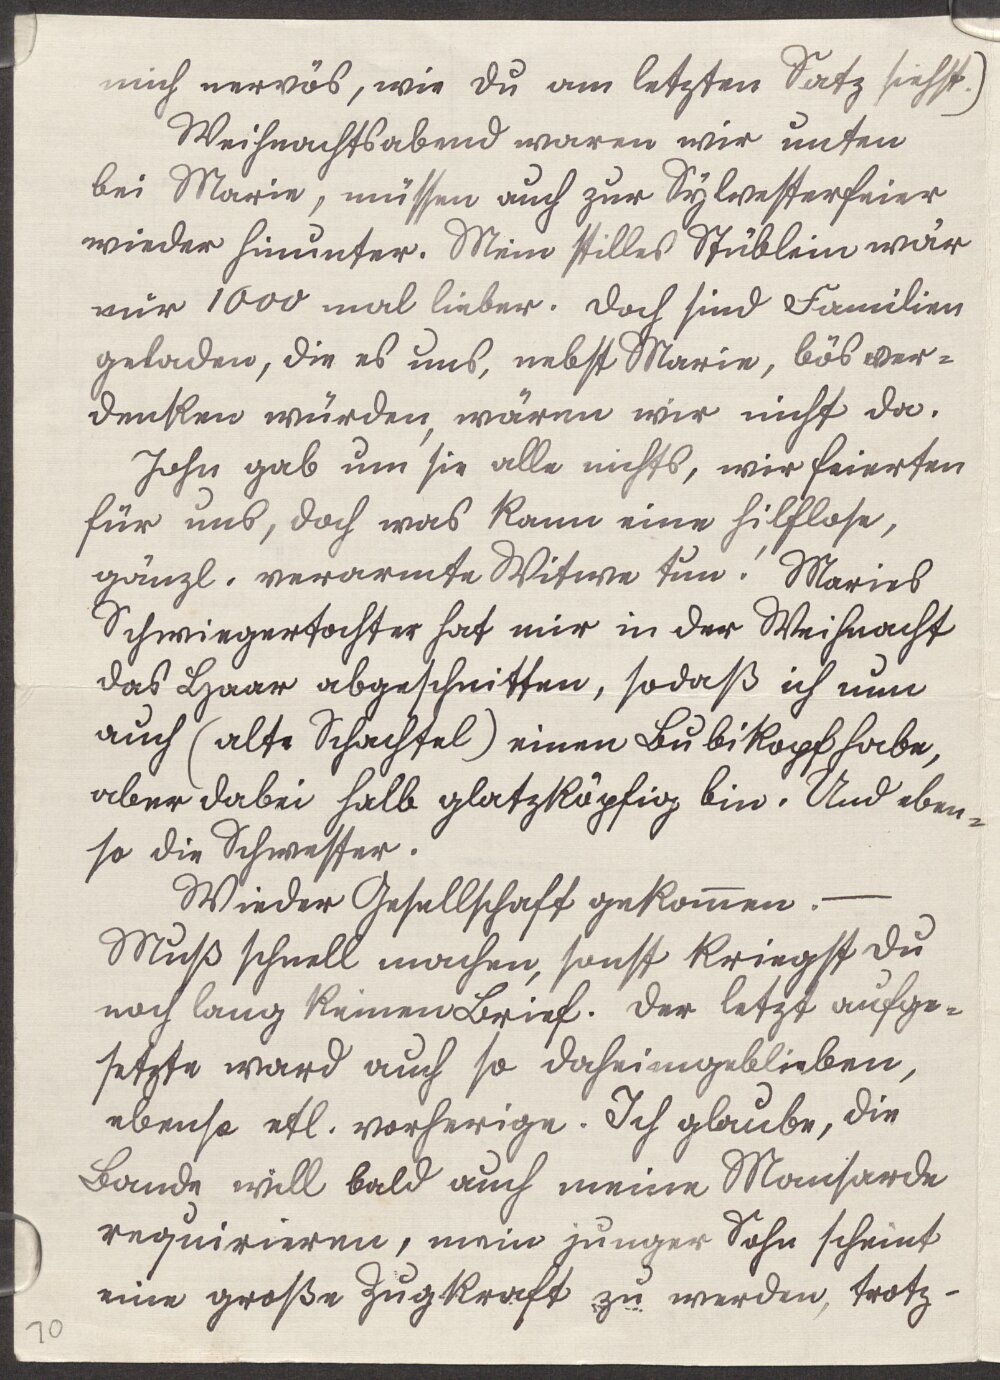 mich nervös, wie Du am letzten Satz siehst.)
Weihnachtsabend waren wir unten
bei Marie, müssen auch zur Sylvesterfeier
wieder hinunter. Mein stilles Stüblein wär
mir 1000 mal lieber. Doch sind Familien
geladen, die es uns, nebst Marie, bös ver=
denken würden, wären wir nicht da.
John gab um sie alle nichts, wir feierten
für uns, doch was kann eine hilflose,
gänzl. verarmte Witwe tun! Maries
Schwiegertochter hat mir in der Weihnacht
das Haar abgeschnitten, sodaß ich nun
auch (alte Schachtel) einen Bubikopf habe,
aber dabei halb glatzköpfig bin. Und eben=
so die Schwester.
Wieder Gesellschaft gekom̅en. —
Muß schnell machen, sonst kriegst Du
noch lang keinen Brief. Der letzt aufge=
setzte ward auch so daheimgeblieben,
ebenso etl. vorherige. Ich glaube, die
Bande will bald auch meine Mansarde
requirieren, mein junger Sohn scheint
eine große Zugkraft zu werden, trotz-
10